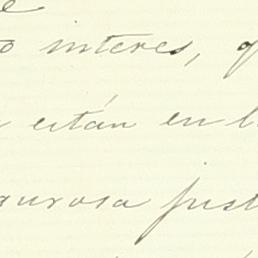 o interes, q
están en l
aurosa just